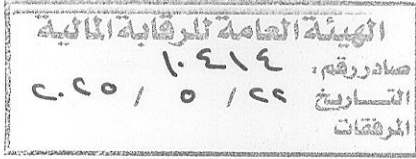 الهيئة العامة للرقابة المالية
صادر رقم: ١٠٤١٤
التاريخ ٢٢ / ٥ / ٢٠٢٥
المرفقات